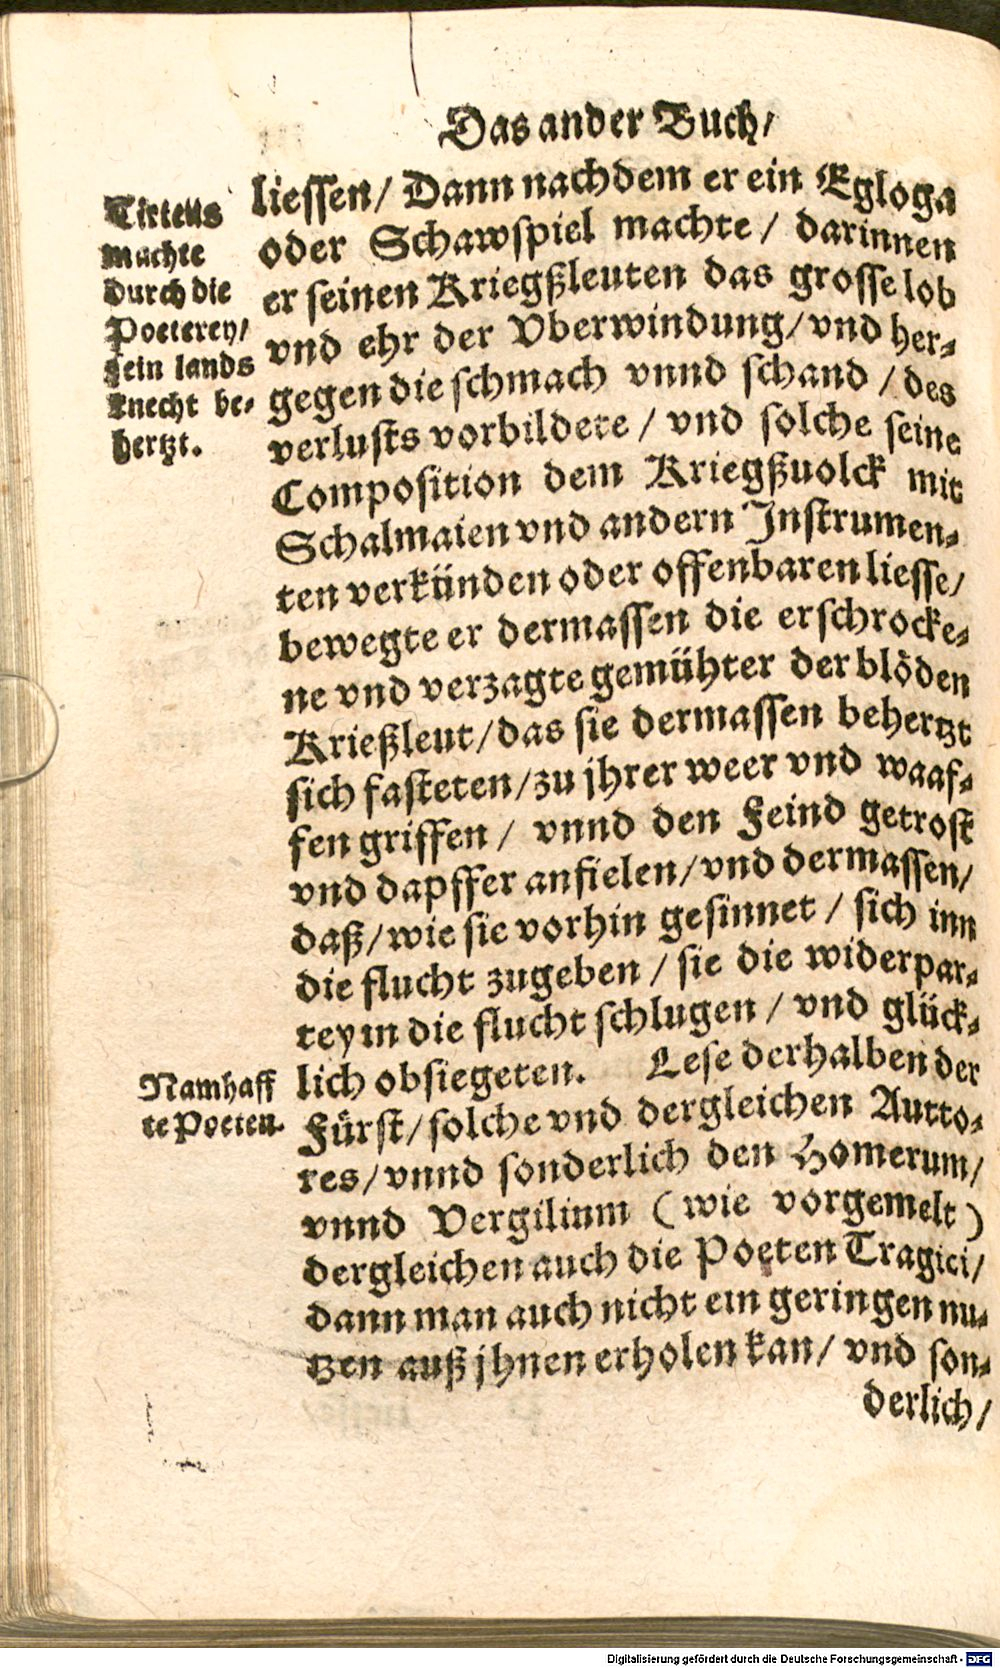 Das ander Buch/
Tirteus
machte
durch die
Poeterey/
sein lands
knecht be-
hertzt.
liessen/ Dann nachdem er ein Egloga
oder Schawspiel machte / darinnen
er seinen Kriegßleuten das grosse lob
vnd ehr der Vberwindung/vnd her-
gegen die schmach vnnd schand / des
verlusts vorbildete / vnd solche seine
Composition dem Kriegßuolck mit
Schalmaien vnd andern Instrumen-
ten verkünden oder offenbaren liesse/
bewegte er dermassen die erschrocke-
ne vnd verzagte gemühter der blöden
Krießleut/das sie dermassen behertzt
sich fasteten/zu jhrer weer vnd waaf-
fen griffen / vnnd den Feind getrost
vnd dapffer anfielen/vnd dermassen/
daß/wie sie vorhin gesinnet / sich inn
die flucht zugeben / sie die widerpar-
tey in die flucht schlugen / vnd glück-
lich obsiegeten. Lese derhalben der
Fürst/solche vnd dergleichen Autto-
res/vnnd sonderlich den Homerum/
vnnd Vergilium (wie vorgemelt)
dergleichen auch die Poeten Tragici/
dann man auch nicht ein geringen nu-
tzen auß jhnen erholen kan/ vnd son-
derlich/
Namhaff
te Poeten.
Digitalisierung gefördert durch die Deutsche Forschungsgemeinschaft - DFG